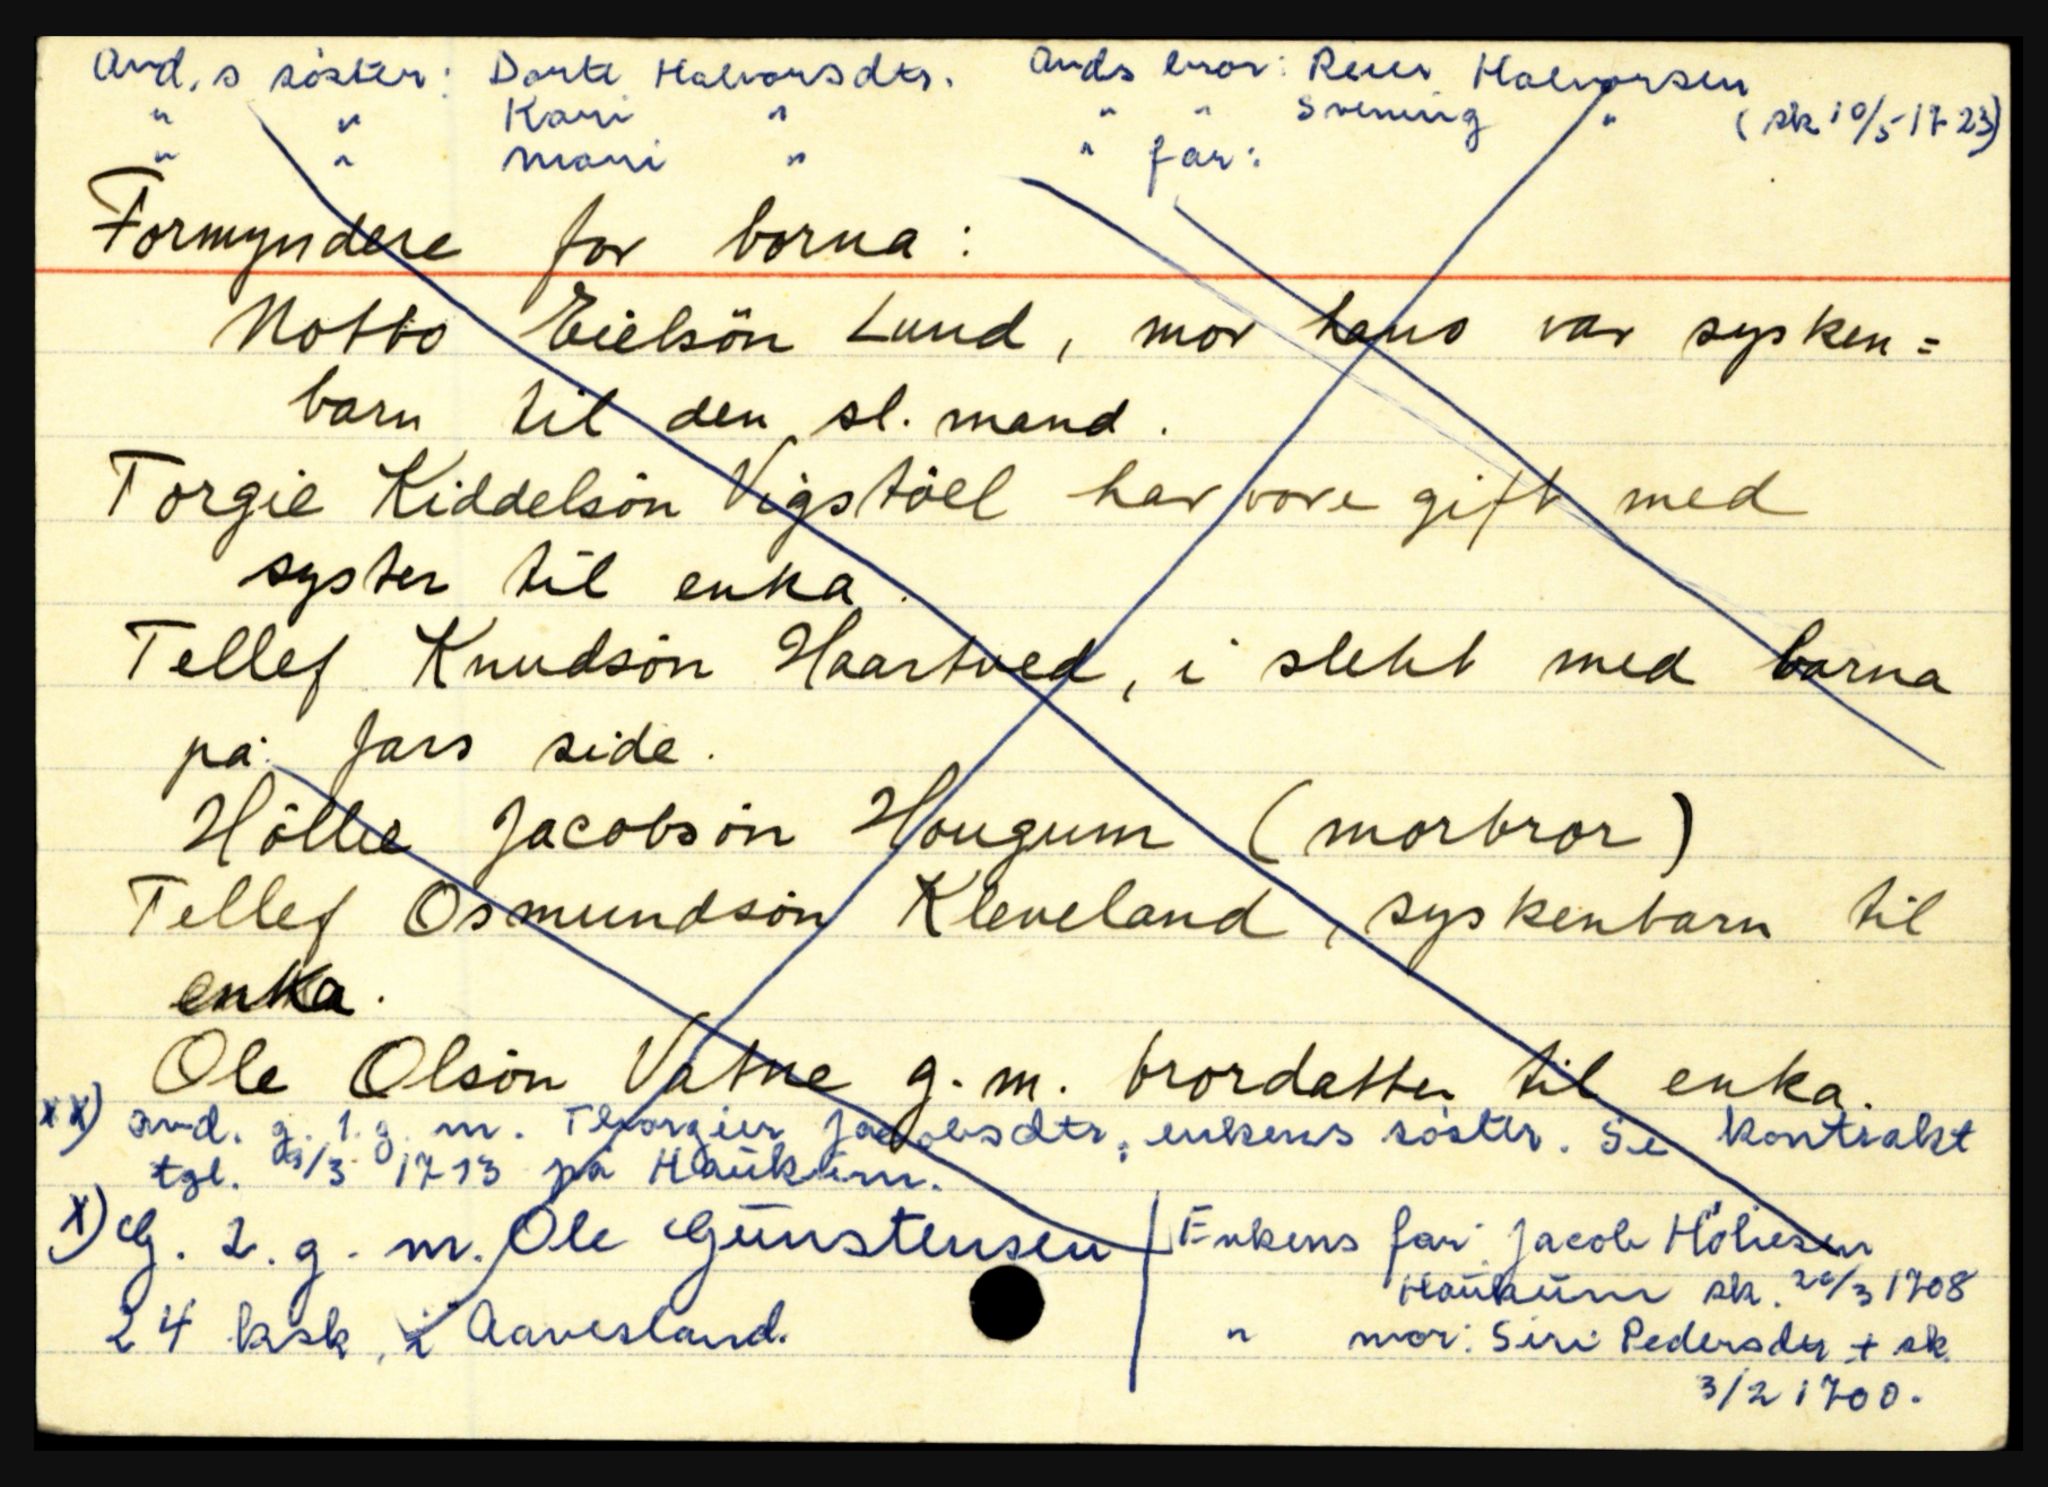 And,s söster: Dorte Halvorsdtr. Ands bror: Reier Halvorsen
" " Kari " " " Svening " (sk 10/5-1723)
" " Mari " " far:
Formyndere for borna:
Notto Eielsön Lund, mor hans var sysken=
barn til den sl. mand.
Torgie Kiddelsön Vigstöel har vore gift med
syster til enka.
Tellef Knudsön Haartved, i slekt med borna
på fars side.
Höllie Jacobsön Hougum (morbror)
Tellef Osmundsön Kleveland, syskenbarn til
enka.
Ole Olsön Vatne g.m. brordatter til enka.
xx) And. g. 1. g. m. Thorgier Jacobsdtr, enkens söster. Se kontrakt
tgl. /3 1713 på Haukum.
x) G. 2. g. m. Ole Gunstensen
24 ksk, i Aavesland.
Enkens far: Jacob Höliesen
Haukum sk. 20/3 1708
" mor: Siri Pedersdtr + sk
3/2 1700.